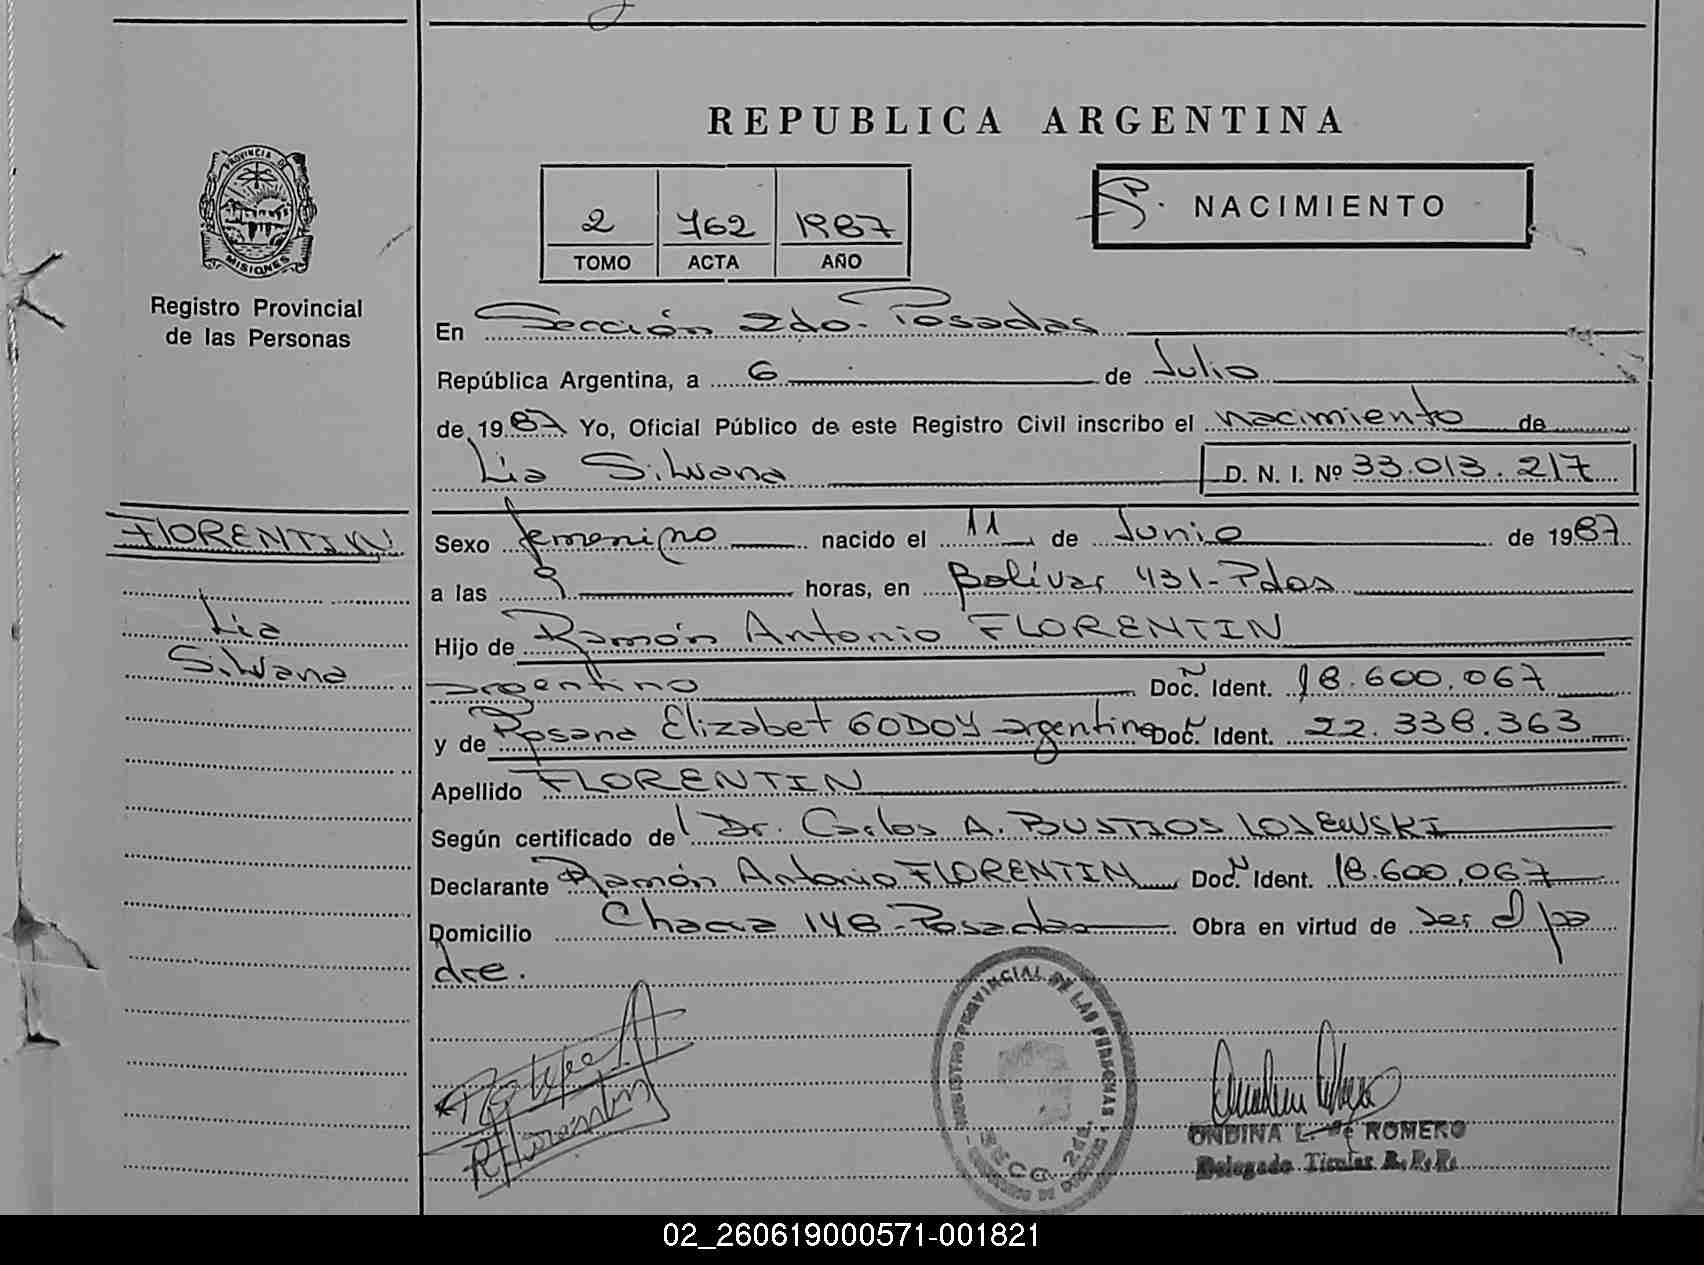 REPUBLICA ARGENTINA
PROVINCIA DE
MISIONES
Registro Provincial
de las Personas
2 762 1987
TOMO ACTA AÑO
NACIMIENTO
En Sección 2do. Posadas
República Argentina, a 6 de Julio
de 1987 Yo, Oficial Público de este Registro Civil inscribo el nacimiento de
Lia Silvana D. N. I. Nº 33.013.217
FLORENTIN
Lia
Silvana
Sexo femenino nacido el 11 de Junio de 1987
a las 9 horas, en Bolívar 431-Pdas
Hijo de Ramón Antonio FLORENTIN
argentino Doc. Ident. 18.600.067
y de Rosana Elizabet GODOY argentina Doc. Ident. 22.338.363
Apellido FLORENTIN
Según certificado del Dr. Carlos A. BUSTIOS LOSEWSKI
Declarante Ramón Antonio FLORENTIN Doc. Ident. 18.600.067
Domicilio Chacra 148-Posadas Obra en virtud de ser el pa
dre.
REGISTRO PROVINCIAL DE LAS PERSONAS
SECC. 2da.
R Florentin
ONDINA L. de ROMERO
Delegado Titular R.P.P.
02_260619000571-001821